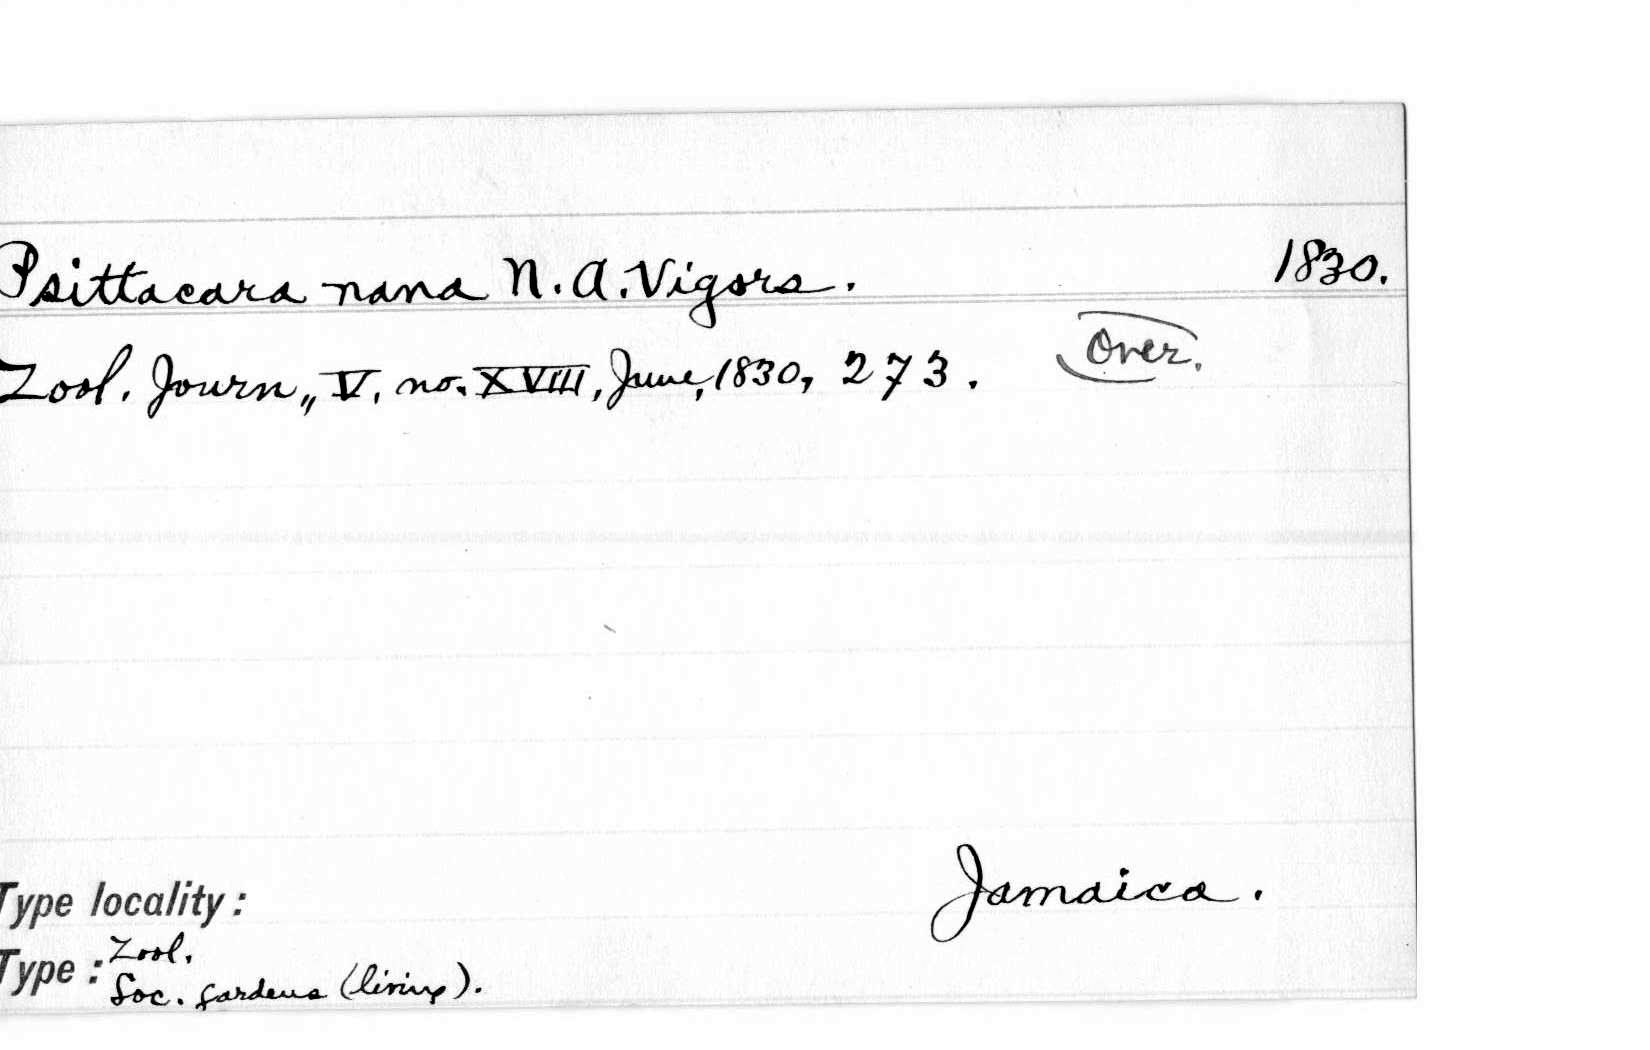 Psittacara nana N. A. Vigors. 1830.
Zool. Journ., V, no. XVIII, June, 1830, 273. Over.
Jamaica.
Type locality:
Type: Zool.
Soc. gardens (living).